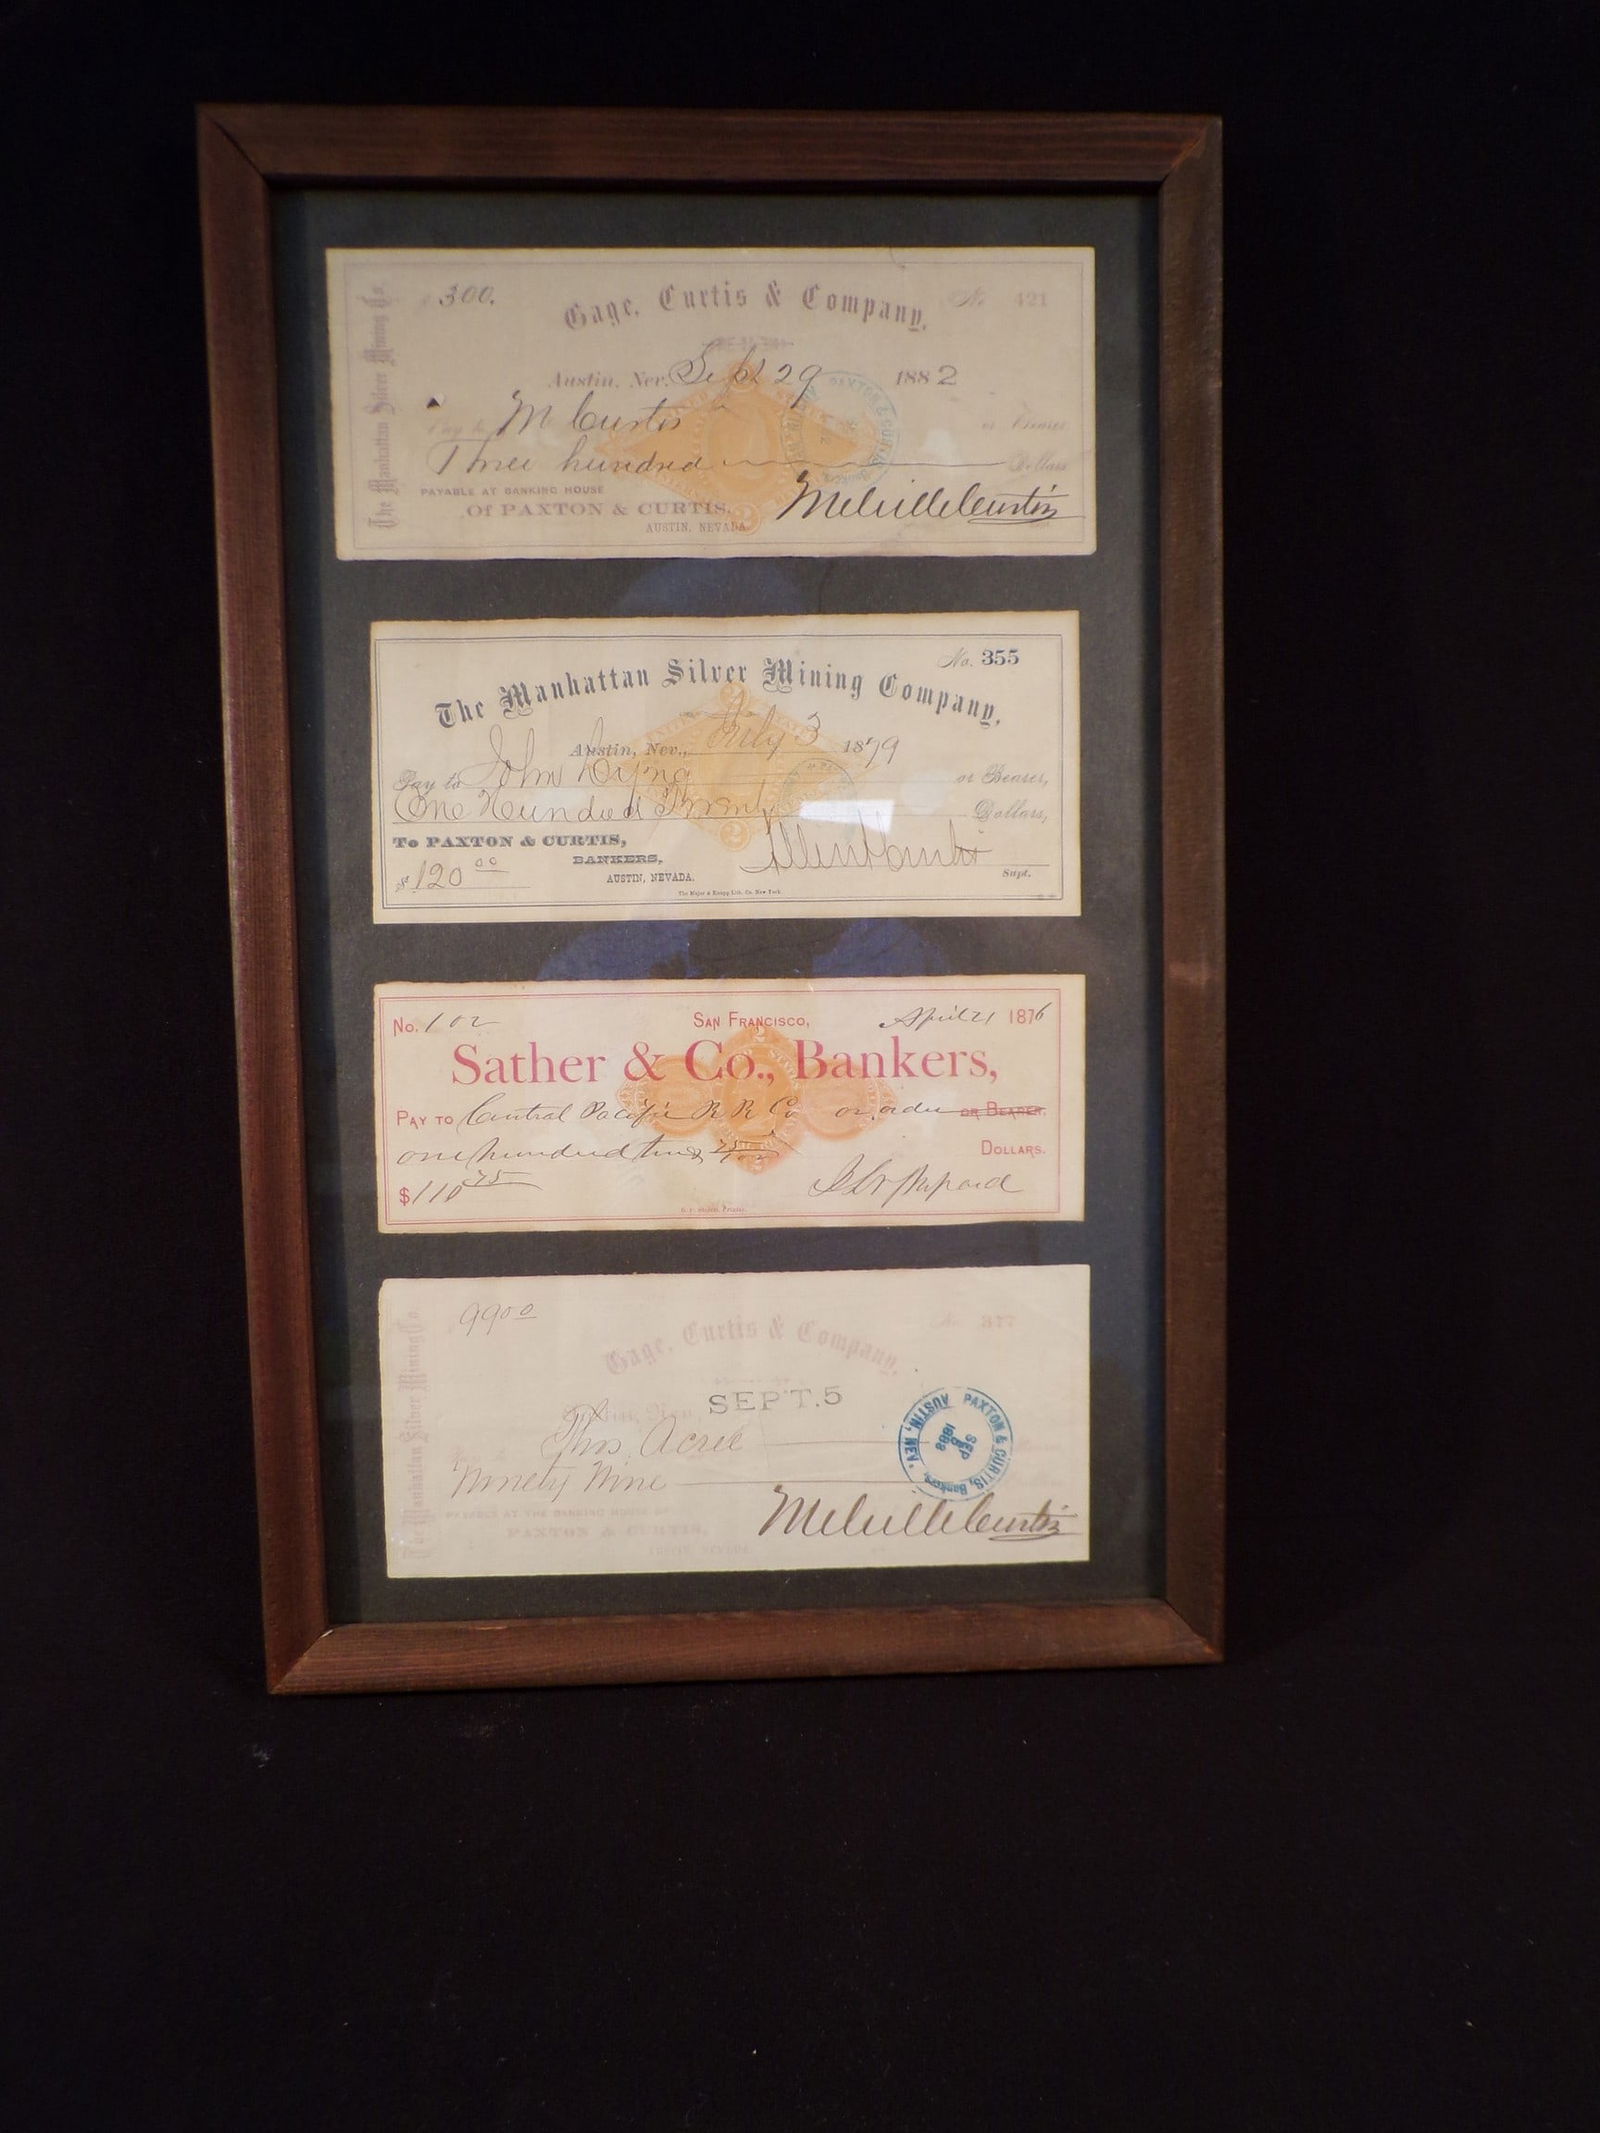 The Manhattan Silver Mining Co.
$ 300.
Gage, Curtis & Company,
No 421
Austin, Nev. Sept 29 1882
Pay to M Curtis or Bearer
Three hundred Dollars
PAYABLE AT BANKING HOUSE
Of PAXTON & CURTIS,
AUSTIN, NEVADA.
Melville Curtis
PAXTON & CURTIS
No. 355
The Manhattan Silver Mining Company,
Austin, Nev., July 3 1879
Pay to John or Bearer,
One Hundred Twenty Dollars,
To PAXTON & CURTIS,
BANKERS,
AUSTIN, NEVADA.
$ 120 00
Supt.
The Major & Knapp Lith. Co. New York.
No. 102 SAN FRANCISCO, April 21 1876
Sather & Co., Bankers,
PAY TO Central Pacific R R Co or order or BEARER,
one hundred ten & 75/100 DOLLARS.
$ 110 75
The Manhattan Silver Mining Co.
99 00
Gage, Curtis & Company,
No 377
Austin, Nev. SEPT. 5
Thos. Acree
Ninety Nine
PAYABLE AT THE BANKING HOUSE OF
PAXTON & CURTIS,
AUSTIN, NEVADA
Melville Curtis
PAXTON & CURTIS, Bankers, AUSTIN, NEV.
SEP
5
1888